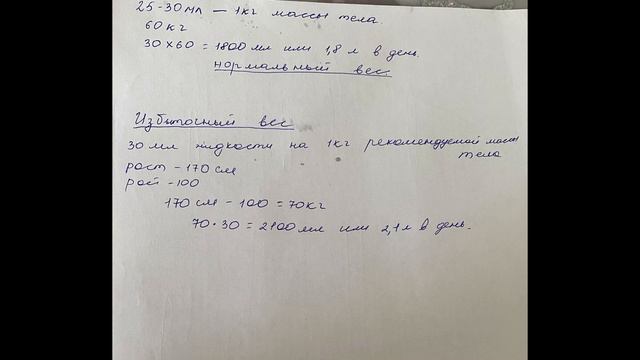 25-30 мл – 1 кг массы тела.
60 кг
30 × 60 = 1800 мл или 1,8 л в день.
нормальный вес
Избыточный вес
30 мл жидкости на 1 кг рекомендуемой массы
тела
рост – 170 см
рост – 100
170 см – 100 = 70 кг
70 · 30 = 2100 мл или 2,1 л в день.